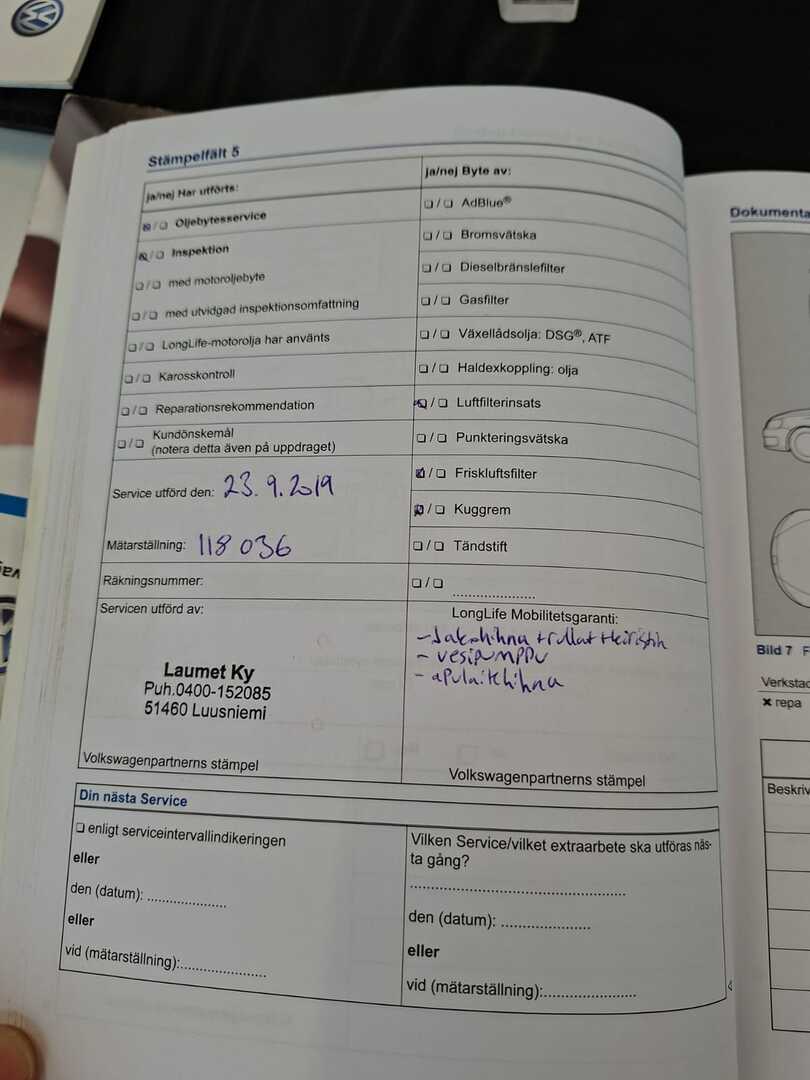 Stämpelfält 5
ja/nej Har utförts:
❏/❏ Oljebytesservice
❏/❏ Inspektion
❏/❏ med motoroljebyte
❏/❏ med utvidgad inspektionsomfattning
❏/❏ LongLife-motorolja har använts
❏/❏ Karosskontroll
❏/❏ Reparationsrekommendation
❏/❏ Kundönskemål
(notera detta även på uppdraget)
Service utförd den: 23.9.2019
Mätarställning: 118 036
Räkningsnummer:
Servicen utförd av:
Laumet Ky
Puh.0400-152085
51460 Luusniemi
Volkswagenpartnerns stämpel
ja/nej Byte av:
❏/❏ AdBlue®
❏/❏ Bromsvätska
❏/❏ Dieselbränslefilter
❏/❏ Gasfilter
❏/❏ Växellådsolja: DSG®, ATF
❏/❏ Haldexkoppling: olja
❏/❏ Luftfilterinsats
❏/❏ Punkteringsvätska
❏/❏ Friskluftsfilter
❏/❏ Kuggrem
❏/❏ Tändstift
❏/❏ ....................
LongLife Mobilitetsgaranti:
- Jakohihna + rullat + keiristin
- vesipumppu
- apulaitehihna
Volkswagenpartnerns stämpel
Din nästa Service
❏ enligt serviceintervallindikeringen
eller
den (datum): ....................
eller
vid (mätarställning):....................
Vilken Service/vilket extraarbete ska utföras näs-
ta gång?
..................................................
den (datum): ....................
eller
vid (mätarställning):....................
Dokumenta
Bild 7 F
Verkstad
✖ repa
Beskriv